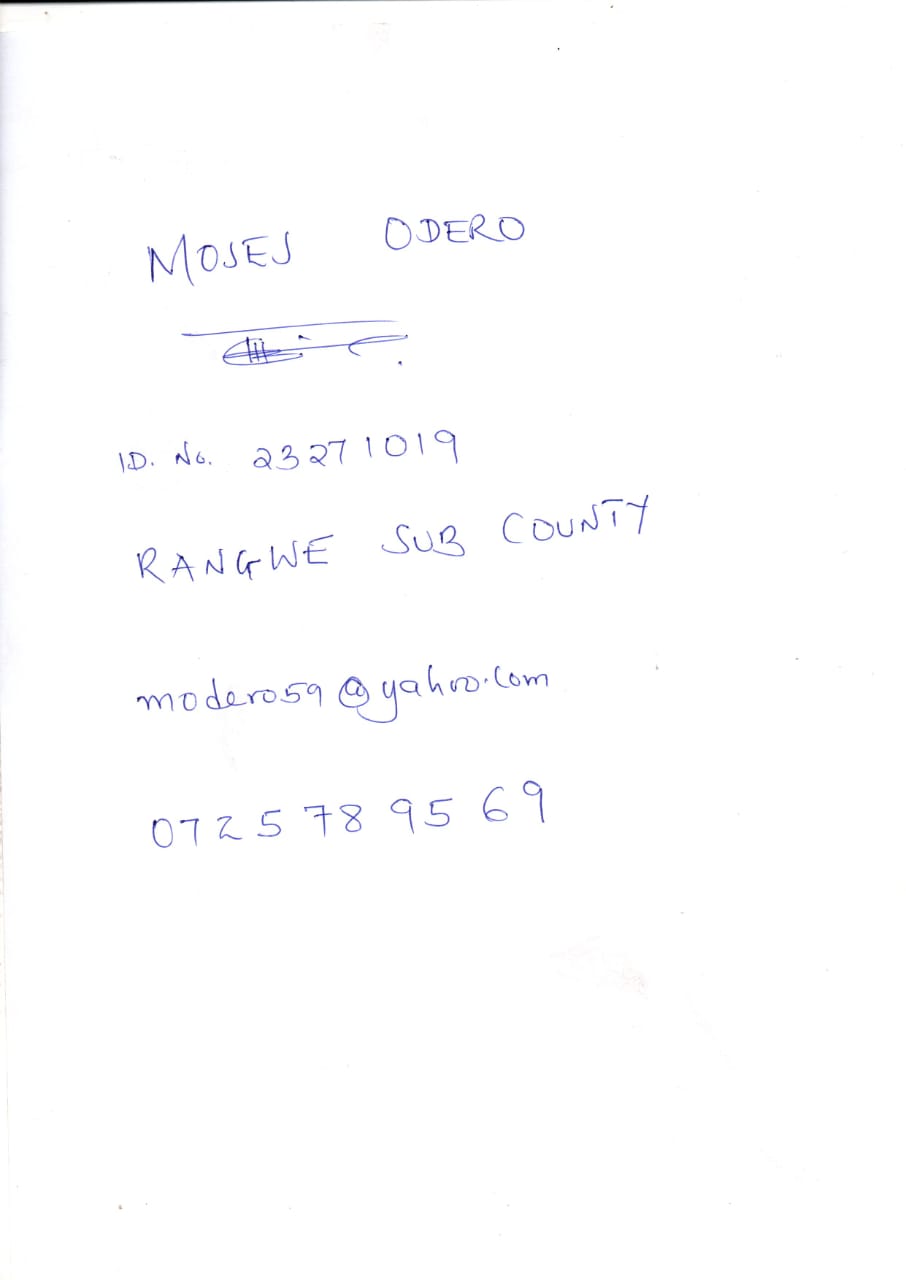 MOSES ODERO
ID. No. 23271019
RANGWE SUB COUNTY
modero59@yahoo.com
0725 78 95 69